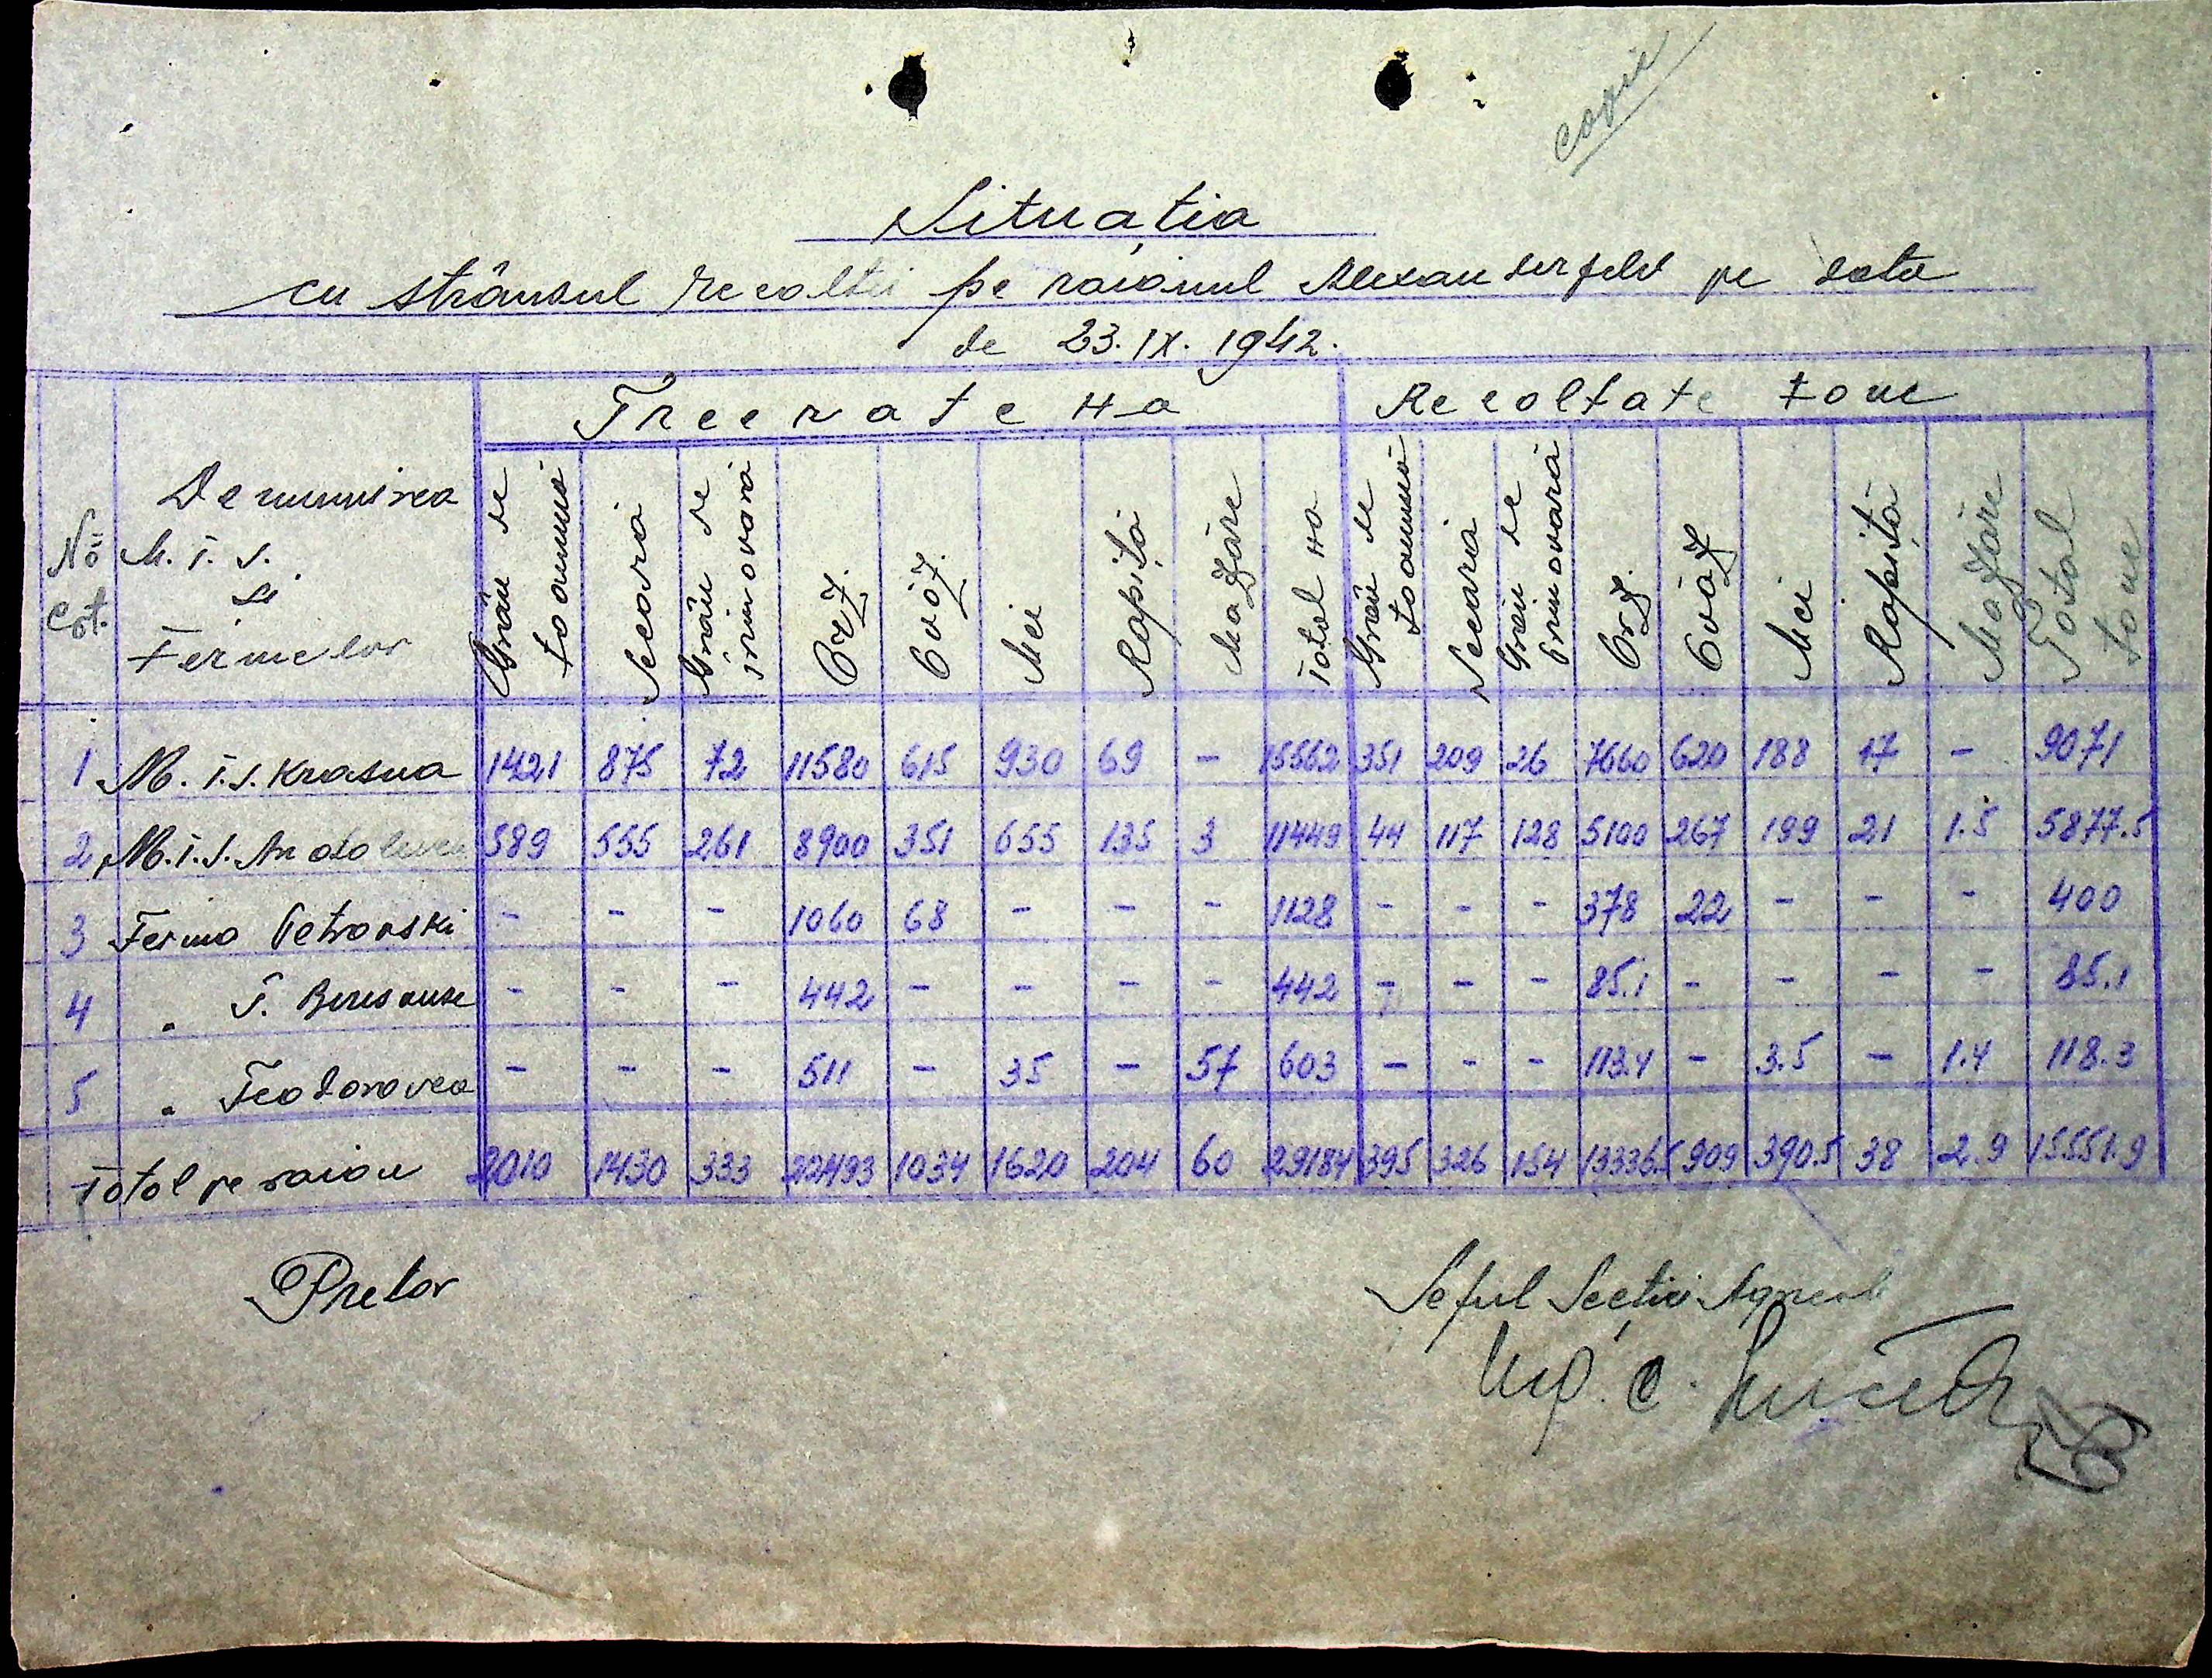 copie
Situația
cu strânsul recoltei pe raionul Alexanderfeld pe data
de 23.IX.1942.
No. crt. Denumirea M.T.S. și Fermelor Treerate Ha Recoltate tone
Grâu de toamnă Secară Grâu de primăvară Orz Ovăz Mei Rapiță Mazăre Total Ha Grâu de toamnă Secară Grâu de primăvară Orz Ovăz Mei Rapiță Mazăre Total tone
1 M.T.S. Krasna 1421 875 72 11580 615 930 69 - 15562 351 209 26 7660 620 188 17 - 9071
2 M.T.S. 589 555 261 8900 351 655 135 3 11449 44 117 128 5100 267 199 21 1.5 5877.5
3 Ferma Petrovski - - - 1060 68 - - - 1128 - - - 378 22 - - - 400
4 " T. - - - 442 - - - - 442 - - - 85.1 - - - - 85.1
5 " Teodorovca - - - 511 - 35 - 57 603 - - - 113.4 - 3.5 - 1.4 118.3
Total pe raion 2010 1430 333 22493 1034 1620 204 60 29184 395 326 154 13336.5 909 390.5 38 2.9 15551.9
Pretor Șeful Secției Agricole
Ing. C.